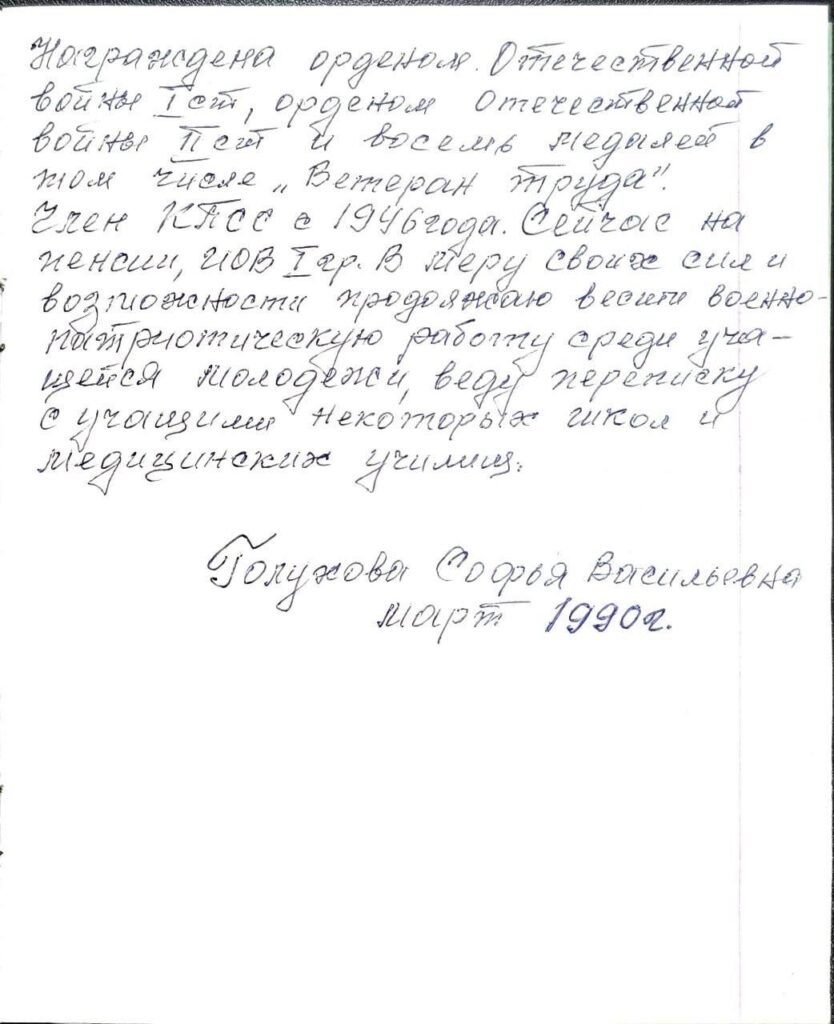 Награждена орденом. Отечественной
войны I ст, орденом Отечественной
войны II ст и восемь медалей в
том числе „Ветеран труда".
Член КПСС с 1946 года. Сейчас на
пенсии, ИОВ I гр. В меру своих сил и
возможности продолжаю вести военно-
патриотическую работу среди уча-
щейся молодежи, веду переписку
с учащими некоторых школ и
медицинских училищ.
Голухова Софья Васильевна
март 1990г.